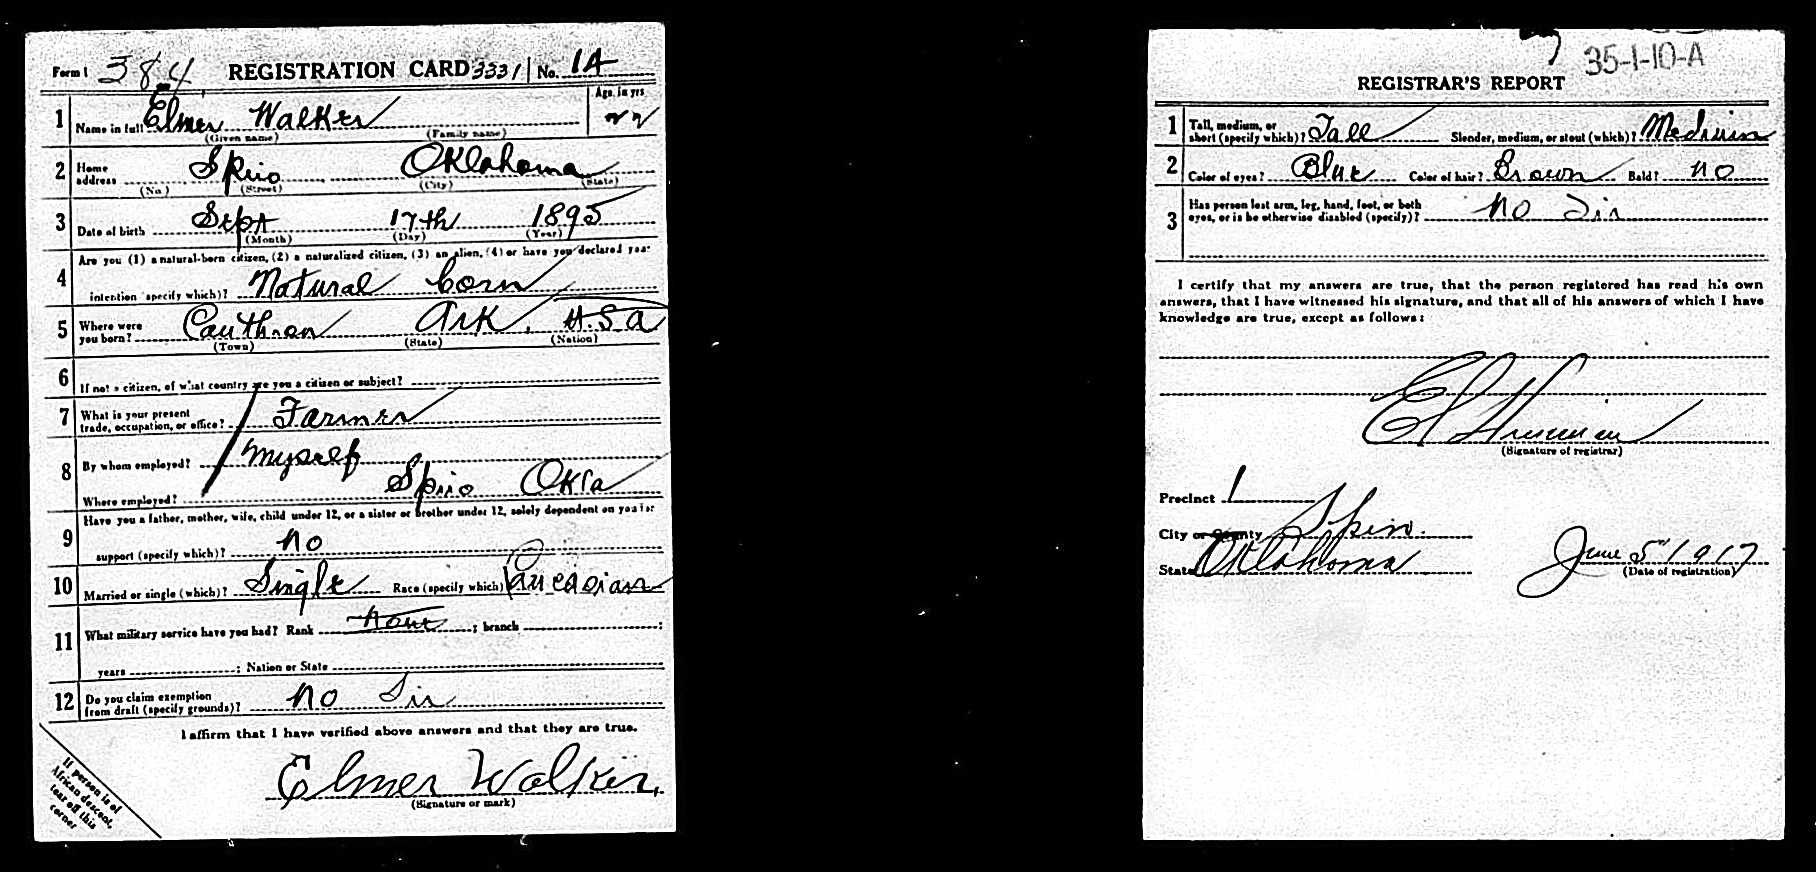 Form 1 384 REGISTRATION CARD 3331 No. 1A
1 Name in full Elmer Walker Age, in yrs 22
(Given name) (Family name)
2 Home address Spiro Oklahoma
(No.) (Street) (City) (State)
3 Date of birth Sept 17th 1895
(Month) (Day) (Year)
4 Are you (1) a natural-born citizen, (2) a naturalized citizen, (3) an alien, (4) or have you declared your
intention (specify which)? Natural born
5 Where were you born? Cauthron Ark. U.S.a
(Town) (State) (Nation)
6 If not a citizen, of what country are you a citizen or subject?
7 What is your present trade, occupation, or office? Farmer
8 By whom employed? myself
Where employed? Spiro Okla
9 Have you a father, mother, wife, child under 12, or a sister or brother under 12, solely dependent on you for
support (specify which)? no
10 Married or single (which)? Single Race (specify which)? Caucasian
11 What military service have you had? Rank none ; branch ;
years ; Nation or State
12 Do you claim exemption from draft (specify grounds)? no Sir
I affirm that I have verified above answers and that they are true.
Elmer Walker.
(Signature or mark)
If person is of
African descent,
tear off this
corner
35-1-10-A
REGISTRAR'S REPORT
1 Tall, medium, or short (specify which)? Tall Slender, medium, or stout (which)? Medium
2 Color of eyes? Blue Color of hair? Brown Bald? no
3 Has person lost arm, leg, hand, foot, or both eyes, or is he otherwise disabled (specify)? no Sir
I certify that my answers are true, that the person registered has read his own
answers, that I have witnessed his signature, and that all of his answers of which I have
knowledge are true, except as follows:
(Signature of registrar)
Precinct 1
City or County Spiro.
State Oklahoma June 5" 1917
(Date of registration)